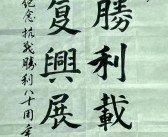 勝利載
復興展
纪念抗战勝利八十周年